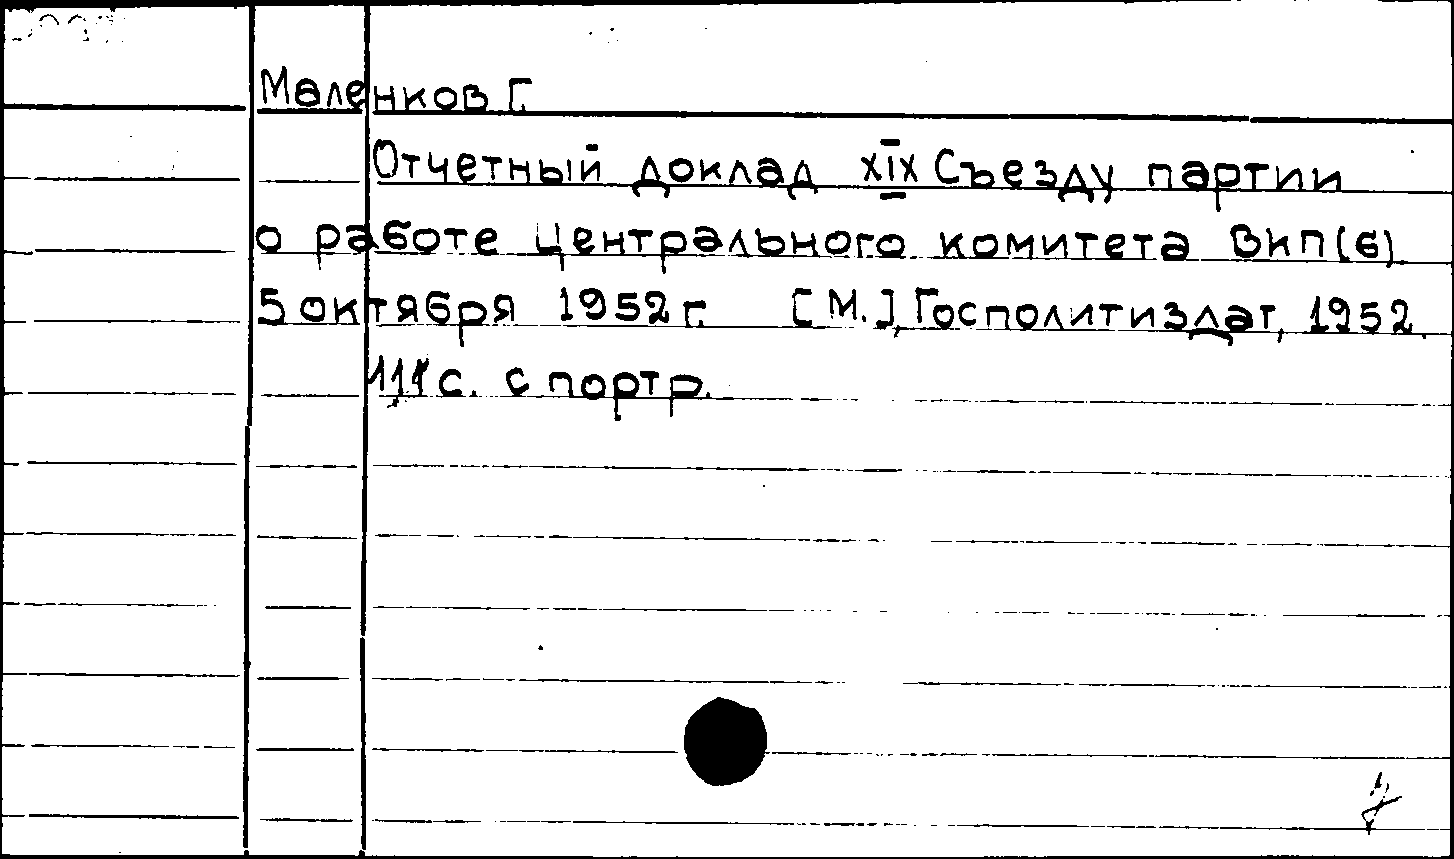 Маленков Г.
Отчетный доклад XIX Съезду партии
о работе Центрального комитета ВКП(б)
5 октября 1952 г. [М.], Госполитиздат, 1952.
111 с. с портр.